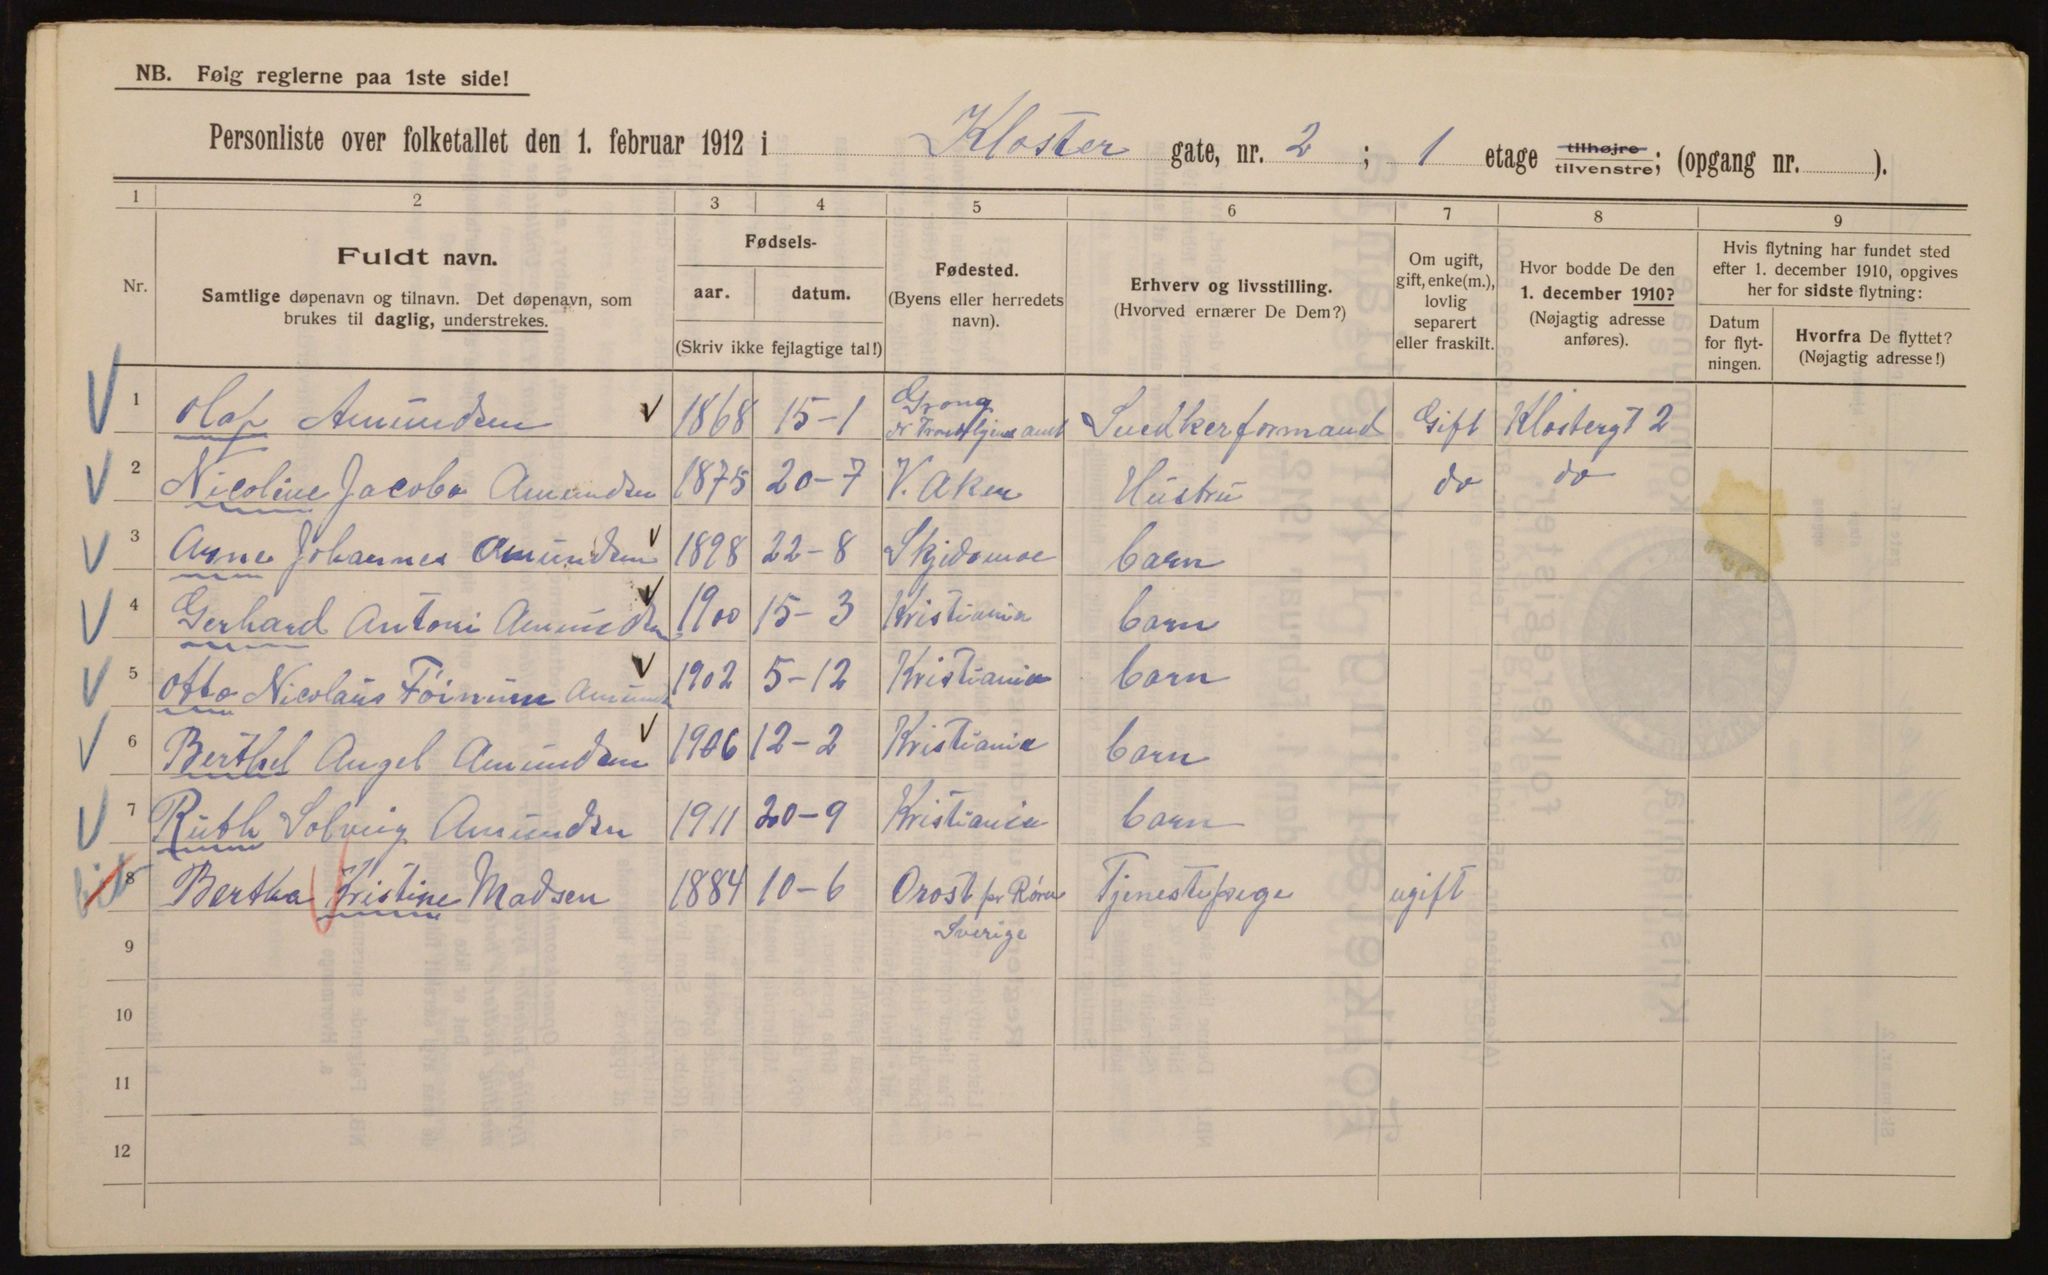 NB. Følg reglerne paa 1ste side!
Personliste over folketallet den 1. februar 1912 i Kloster gate, nr. 2 ; 1 etage tilhøjre tilvenstre; (opgang nr. ).
1 2 3 4 5 6 7 8 9
Nr.
Fuldt navn.
Samtlige døpenavn og tilnavn. Det døpenavn, som
brukes til daglig, understrekes.
Fødsels-
aar. datum.
(Skriv ikke fejlagtige tal!)
Fødested.
(Byens eller herredets
navn).
Erhverv og livsstilling.
(Hvorved ernærer De Dem?)
Om ugift,
gift, enke(m.),
lovlig
separert
eller fraskilt.
Hvor bodde De den
1. december 1910?
(Nøjagtig adresse
anføres).
Hvis flytning har fundet sted
efter 1. december 1910, opgives
her for sidste flytning:
Datum
for flyt-
ningen.
Hvorfra De flyttet?
(Nøjagtig adresse!)
1 Olaf Amundsen 1868 15-1 Grong N Trondhjems amt Snedkerformand Gift Klostergt 2
2 Nicoline Jacoba Amundsen 1875 20-7 V. Aker Hustru do do
3 Arne Johannes Amundsen 1898 22-8 barn
4 Gerhard Antoni Amundsen 1900 15-3 Kristiania barn
5 Otto Nicolaus Amunds 1902 5-12 Kristiania barn
6 Berthel Angel Amundsen 1906 12-2 Kristiania barn
7 Ruth Solveig Amundsen 1911 20-9 Kristiania barn
8 Bertha Kristine Madsen 1884 10-6 Orost pr Tjenestepige ugift
Sverige
9
10
11
12